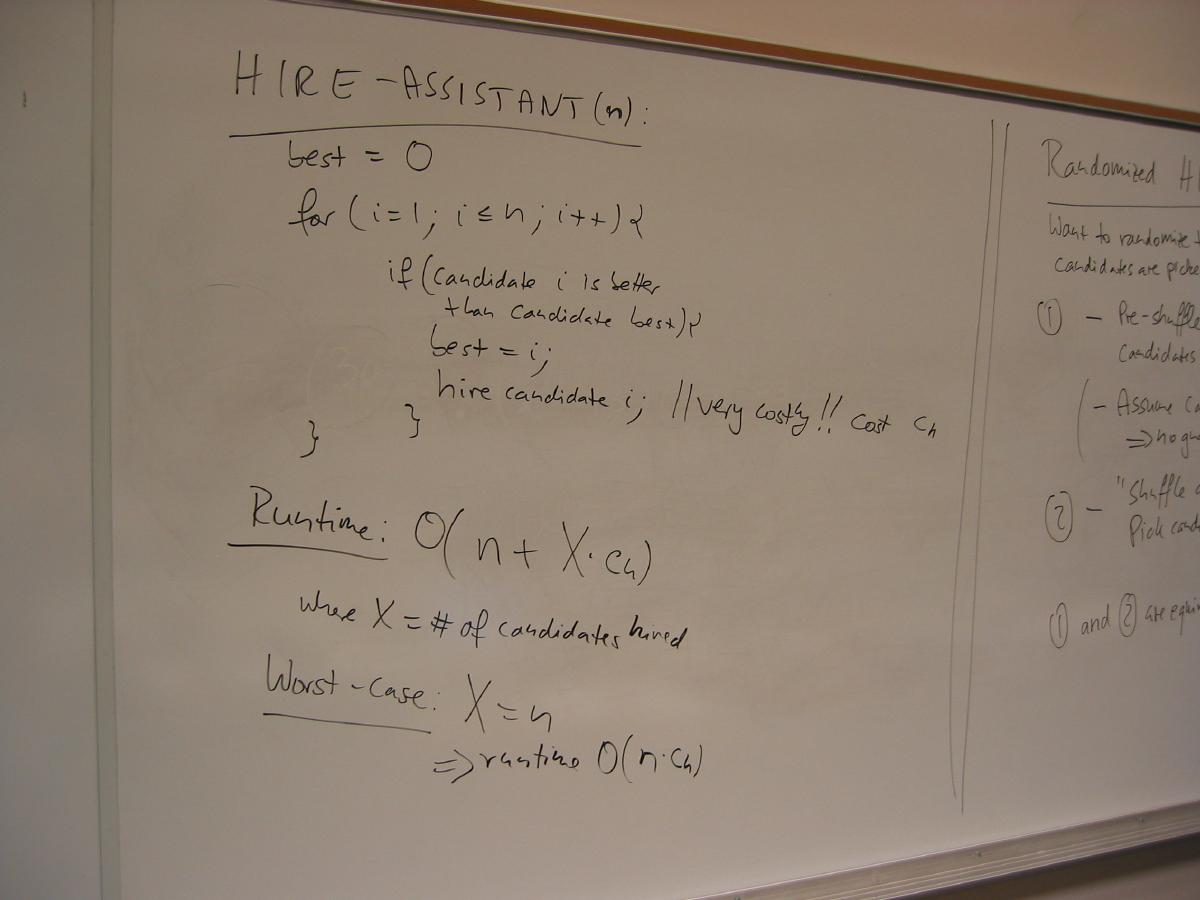 HIRE-ASSISTANT(n):
best = 0
for (i=1; i≤n; i++) {
if (candidate i is better
than candidate best) {
best = i;
hire candidate i; // very costly!! cost ch
}
}
Runtime: O(n + X·ch)
where X = # of candidates hired
Worst-case: X = n
=> runtime O(n·ch)
Randomized
Want to randomize
candidates are
① - Pre-shuffle
Candidates
- Assume
=> no
② - "Shuffle
Pick
① and ② are